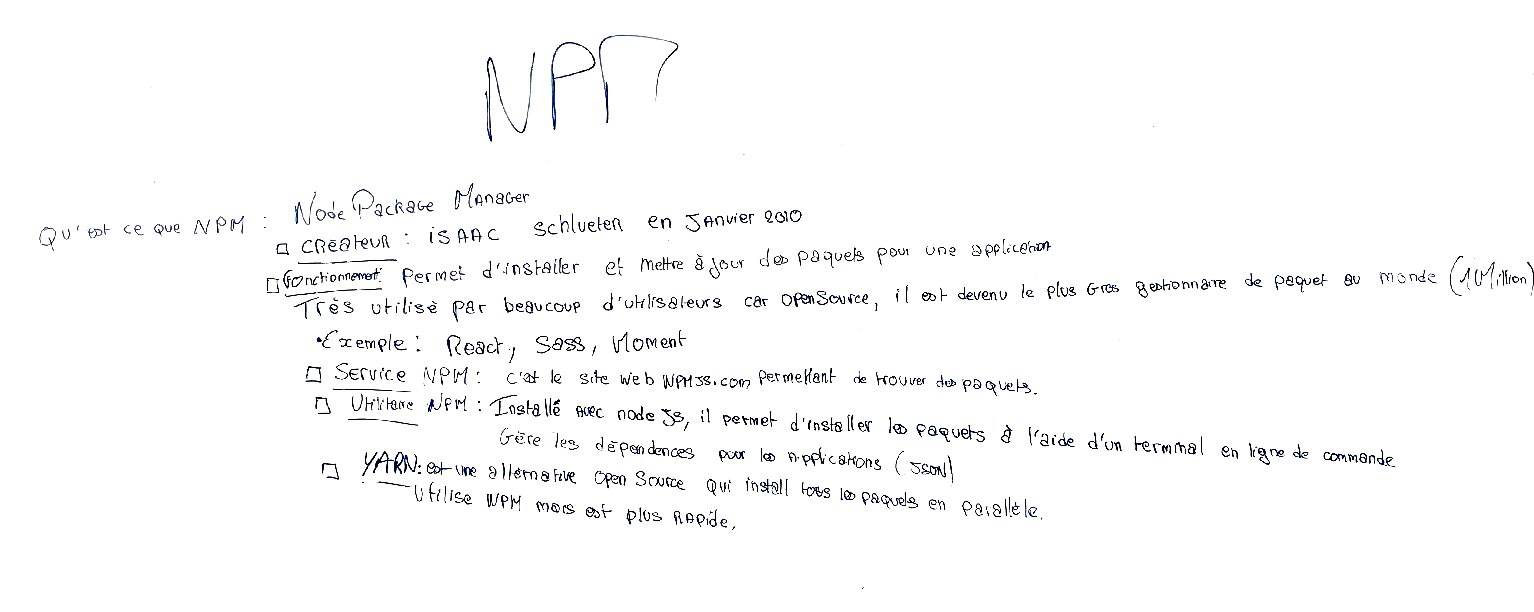 NPM
Qu'est ce que NPM : Node Package Manager
□ Créateur : isaac schlueter en Janvier 2010
□ fonctionnement: Permet d'installer et mettre à jour des paquets pour une application
Très utilisé par beaucoup d'utilisateurs car openSource, il est devenu le plus Gros gestionnaire de paquet au monde (1 Million)
• Exemple : React, Sass, Moment
□ Service NPM : c'est le site web NPMJS.com permettant de trouver des paquets.
□ Utilitaire NPM : Installé avec node JS, il permet d'installer les paquets à l'aide d'un terminal en ligne de commande
Gère les dépendences pour les applications (JSON)
□ YARN : est une alternative open Source qui install tous les paquets en parallèle.
Utilise NPM mais est plus rapide.